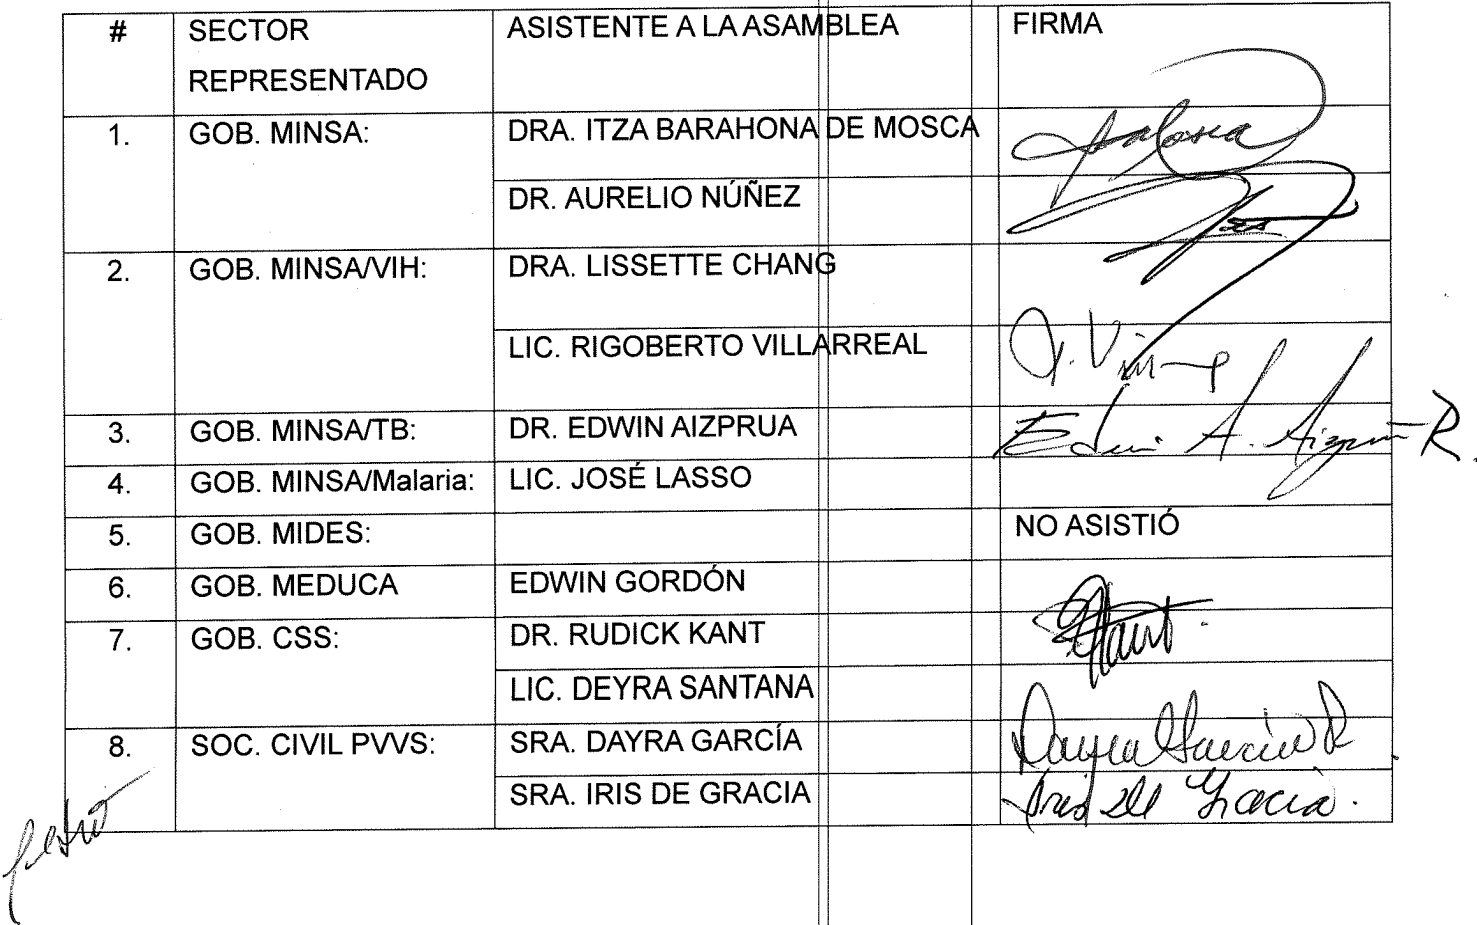 # SECTOR REPRESENTADO ASISTENTE A LA ASAMBLEA FIRMA
1. GOB. MINSA: DRA. ITZA BARAHONA DE MOSCA
DR. AURELIO NÚÑEZ
2. GOB. MINSA/VIH: DRA. LISSETTE CHANG
LIC. RIGOBERTO VILLARREAL
3. GOB. MINSA/TB: DR. EDWIN AIZPRUA Edwin A. Aizprua R.
4. GOB. MINSA/Malaria: LIC. JOSÉ LASSO
5. GOB. MIDES: NO ASISTIÓ
6. GOB. MEDUCA EDWIN GORDÓN
7. GOB. CSS: DR. RUDICK KANT Kant
LIC. DEYRA SANTANA
8. SOC. CIVIL PVVS: SRA. DAYRA GARCÍA Dayra García R
SRA. IRIS DE GRACIA Iris de Gracia.